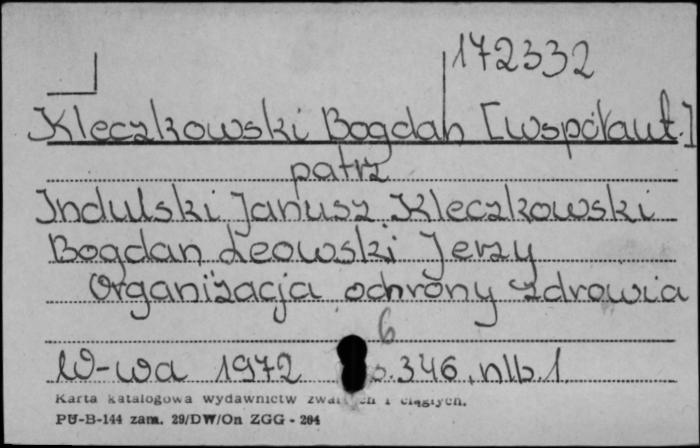 172332
Kleczkowski Bogdan [współaut.]
patrz
Indulski Janusz Kleczkowski
Bogdan Leowski Jerzy
Organizacja ochrony zdrowia
6
W-wa 1972 s. 346, nlb. 1.
Karta katalogowa wydawnictw i ciągłych.
PU-B-144 zam. 29/DW/On ZGG - 204